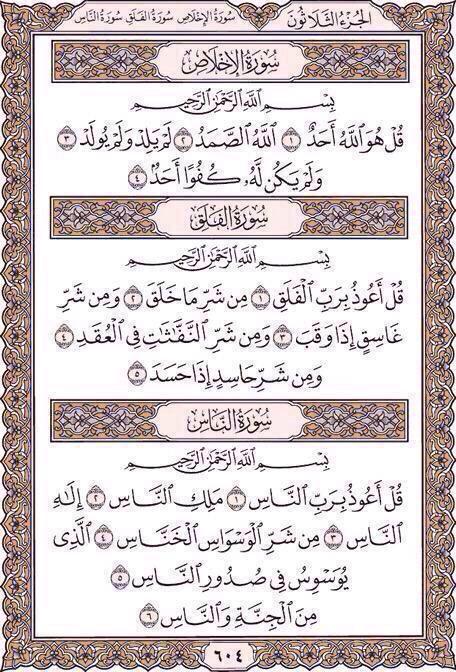 سُورَةُ الإِخْلَاصِ سُورَةُ الْفَلَقِ سُورَةُ النَّاسِ
الجُزءُ الثَّلَاثُونَ
سُورَةُ الإِخْلَاصِ
بِسْمِ ٱللَّهِ ٱلرَّحْمَٰنِ ٱلرَّحِيمِ
قُلْ هُوَ ٱللَّهُ أَحَدٌ ١ ٱللَّهُ ٱلصَّمَدُ ٢ لَمْ يَلِدْ وَلَمْ يُولَدْ ٣
وَلَمْ يَكُن لَّهُۥ كُفُوًا أَحَدٌۢ ٤
سُورَةُ الْفَلَقِ
بِسْمِ ٱللَّهِ ٱلرَّحْمَٰنِ ٱلرَّحِيمِ
قُلْ أَعُوذُ بِرَبِّ ٱلْفَلَقِ ١ مِن شَرِّ مَا خَلَقَ ٢ وَمِن شَرِّ
غَاسِقٍ إِذَا وَقَبَ ٣ وَمِن شَرِّ ٱلنَّفَّٰثَٰتِ فِى ٱلْعُقَدِ ٤
وَمِن شَرِّ حَاسِدٍ إِذَا حَسَدَ ٥
سُورَةُ النَّاسِ
بِسْمِ ٱللَّهِ ٱلرَّحْمَٰنِ ٱلرَّحِيمِ
قُلْ أَعُوذُ بِرَبِّ ٱلنَّاسِ ١ مَلِكِ ٱلنَّاسِ ٢ إِلَٰهِ
ٱلنَّاسِ ٣ مِن شَرِّ ٱلْوَسْوَاسِ ٱلْخَنَّاسِ ٤ ٱلَّذِى
يُوَسْوِسُ فِى صُدُورِ ٱلنَّاسِ ٥
مِنَ ٱلْجِنَّةِ وَٱلنَّاسِ ٦
٦٠٤